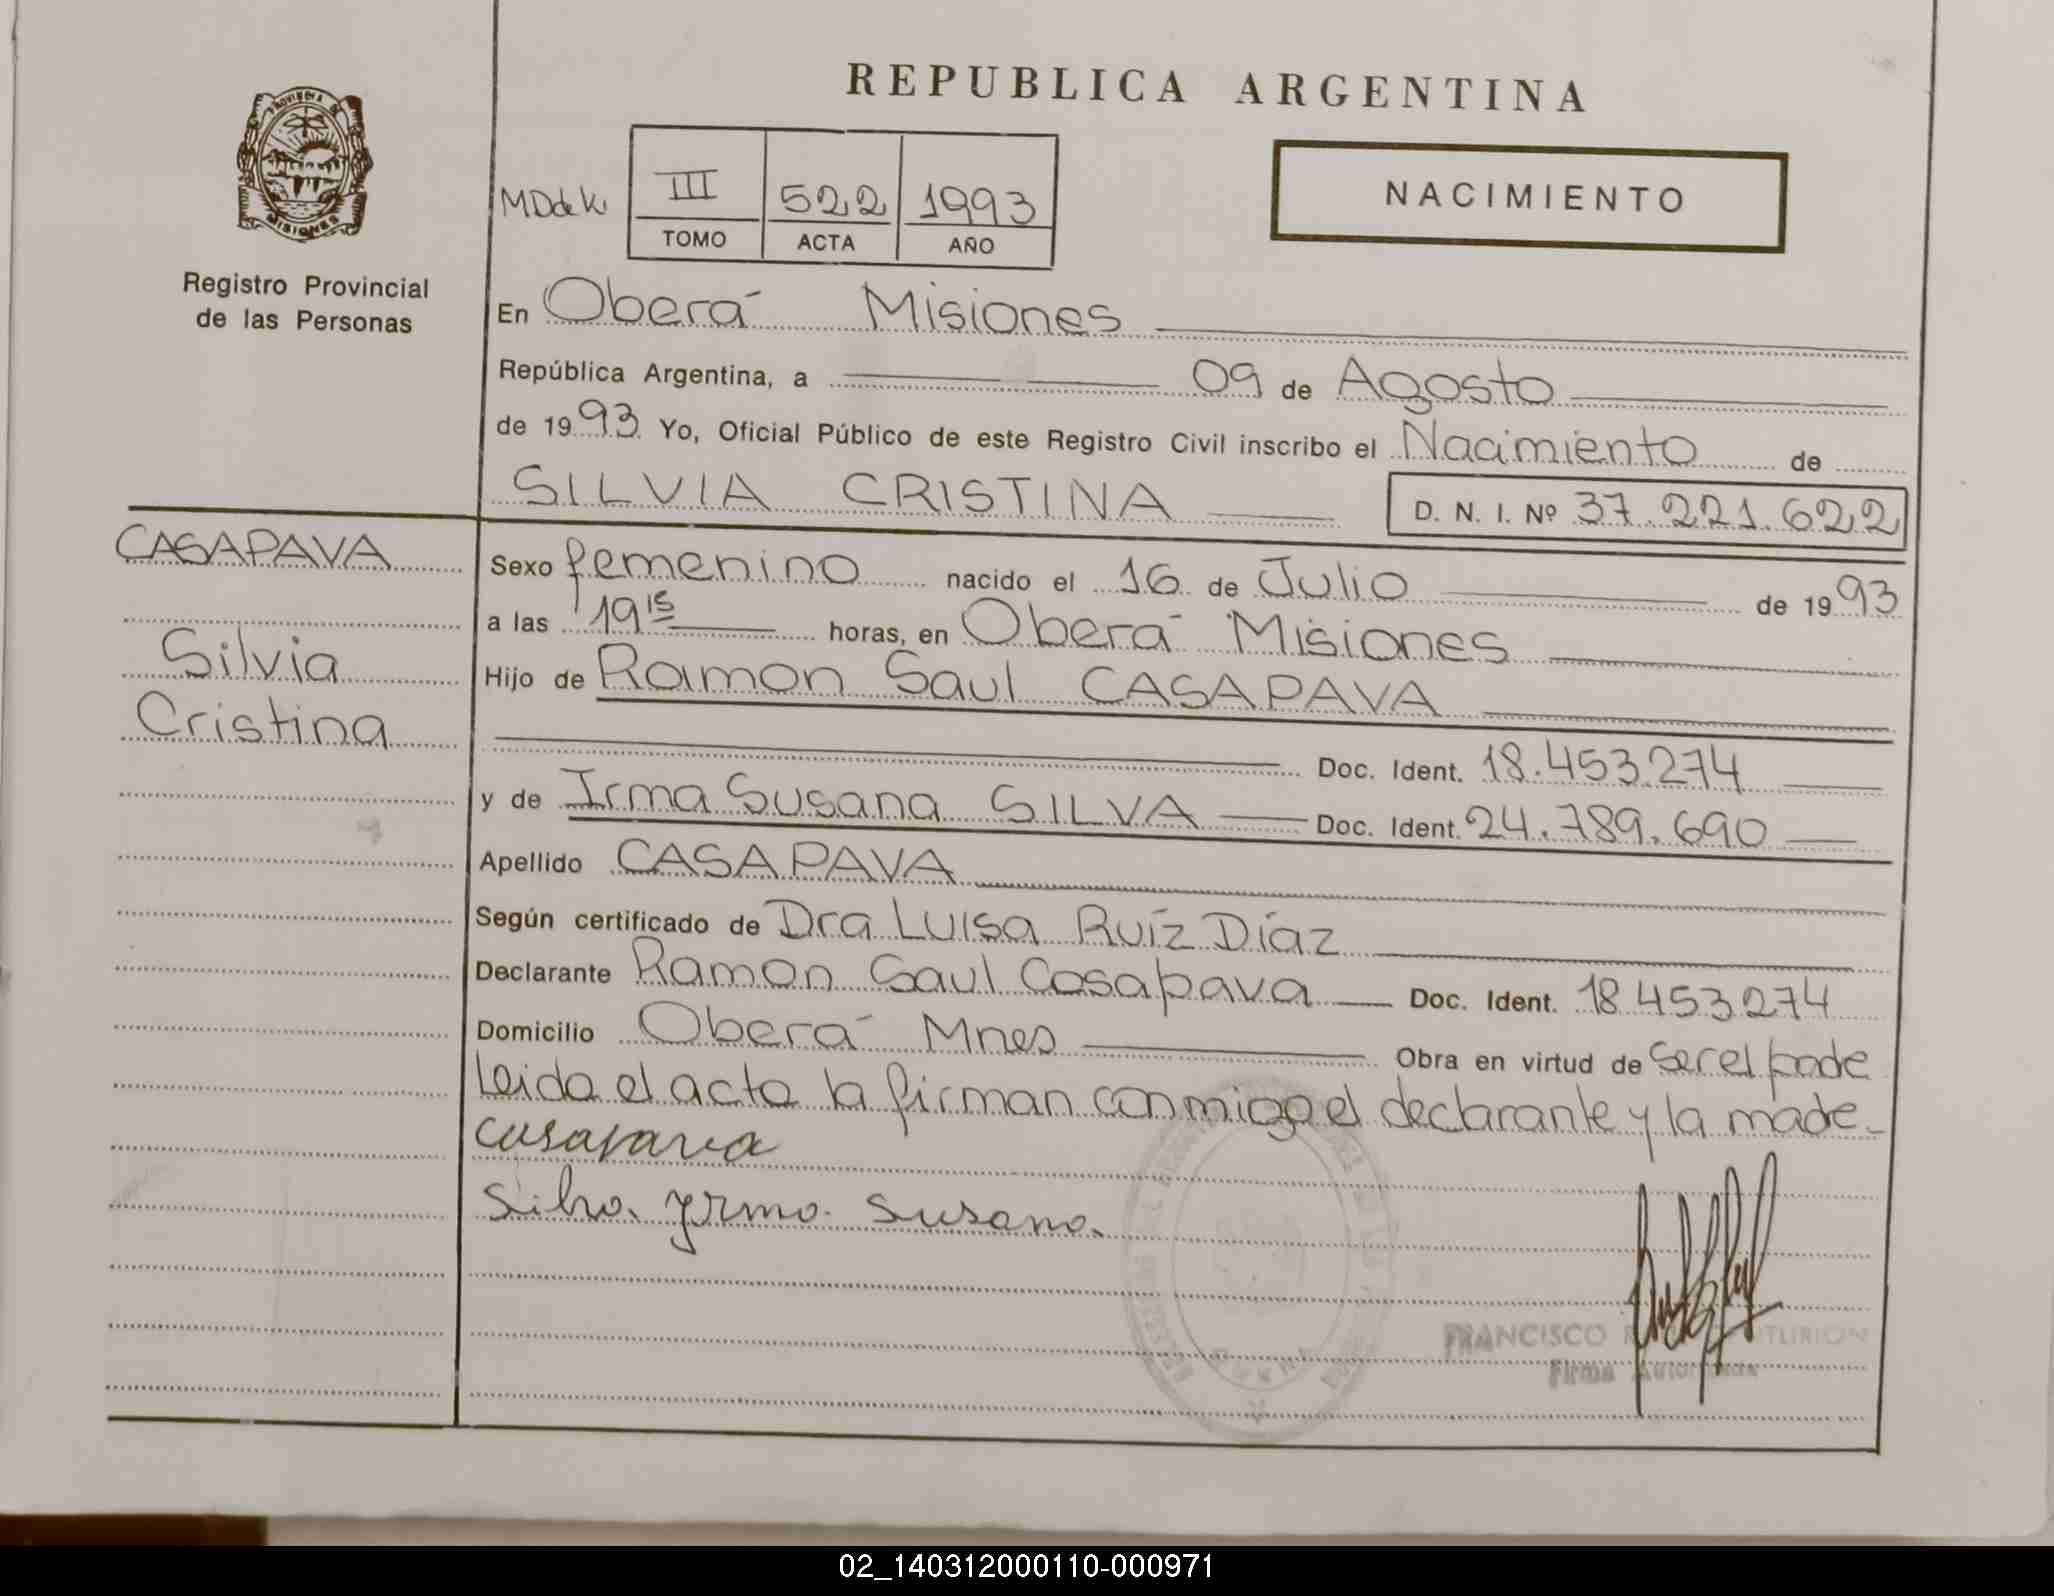 REPUBLICA ARGENTINA
PROVINCIA DE
MISIONES
Registro Provincial
de las Personas
MDdeK
III 522 1993
TOMO ACTA AÑO
NACIMIENTO
En Oberá Misiones
República Argentina, a 09 de Agosto
de 1993 Yo, Oficial Público de este Registro Civil inscribo el Nacimiento de
SILVIA CRISTINA D. N. I. Nº 37.221.622
CASAPAVA
Silvia
Cristina
Sexo femenino nacido el 16 de Julio de 1993
a las 19 15 horas, en Oberá Misiones
Hijo de Ramon Saul CASAPAVA
Doc. Ident. 18.453.274
y de Irma Susana SILVA Doc. Ident. 24.789.690
Apellido CASAPAVA
Según certificado de Dra Luisa Ruíz Díaz
Declarante Ramon Saul Casapava Doc. Ident. 18.453.274
Domicilio Oberá Mnes Obra en virtud de ser el padre
Leida el acta la firman conmigo el declarante y la madre
Casapava
Silva Yrma Susana.
FRANCISCO
Firma Autorizada
02_140312000110-000971